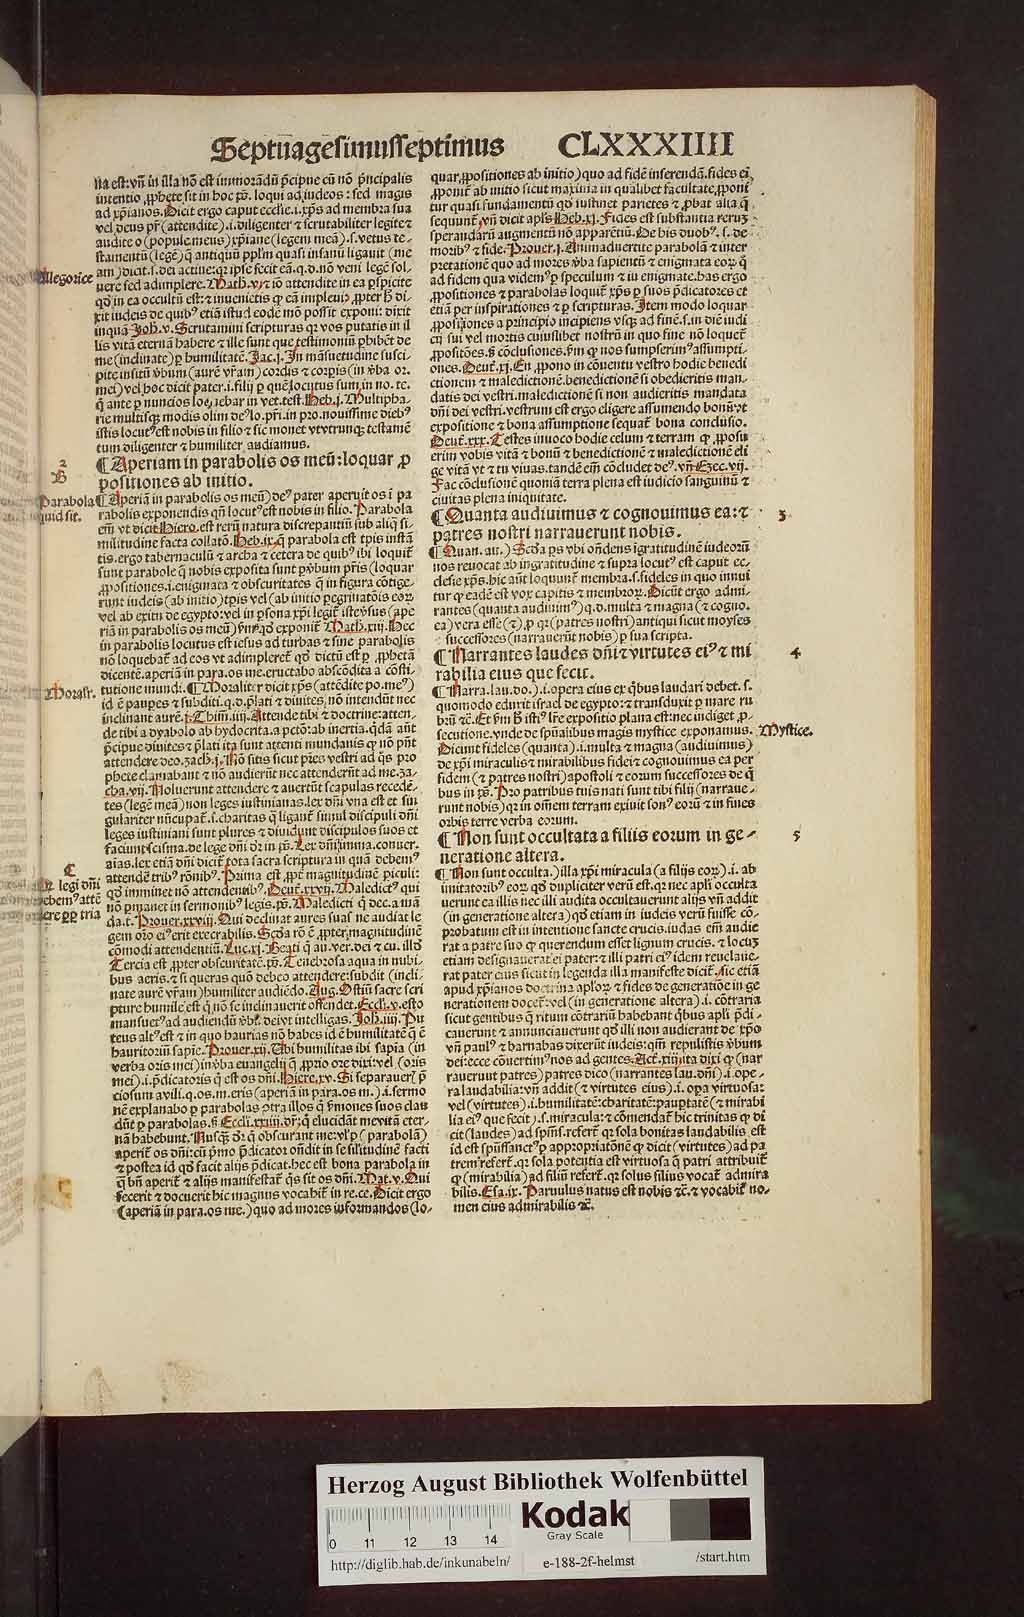 Septuagesimusseptimus CLXXXIIII
na est: vñ in illa nō est immorādū p̄cipue cū nō p̄ncipalis
intentio ꝓphete sit in hoc ps̄. loqui ad iudeos: sed magis
ad xp̄ianos. Dicit ergo caput ecclie .i. xp̄s ad membra sua
vel deus pr̄ (attendite) .i. diligenter ⁊ scrutabiliter legite ⁊
audite o (popule meus) xp̄iane (legem meā) .s. vetus te-
stamentū (legē) q̄ antiquū pplm̄ quasi infanū ligauit (me
Allegorice
am) dict. s. dei actiue: qr ipse fecit eā. q. d. nō veni legē sol-
uere sed adimplere. Math. v. ⁊ iō attendite in ea p̄spicite
qd̄ in ea occultū est: ⁊ inuenietis ꝙ eā impleui, ꝓpter hō di-
xit iudeis de quibꝰ etiā istud eodē mō possit exponi: dixit
inquā Joh̄. v. Scrutamini scripturas qr vos putatis in il
lis vitā eternā habere ⁊ ille sunt que testimoniū ꝑhibēt de
me (inclinate) ꝑ humilitatē. Jac. j. In māsuetudine susci
pite insitū v̄bum (aurē vr̄am) cordis ⁊ corpis (in v̄ba or.
mei) vel hoc dicit pater .i. filij ꝑ quē locutus sum in no. te.
q̄ ante ꝑ nuncios loquebar in vet. test. Heb. j. Multipha-
rie multisqꝫ modis olim deꝰ lo. pr̄i. in pro. nouissime diebꝰ
istis locutꝰ est nobis in filio ⁊ sic monet vt vtrunqꝫ testamē
tum diligenter ⁊ humiliter audiamus.
2
B
¶ Aperiam in parabolis os meū: loquar ꝓ
positiones ab initio.
Parabola
quid sit.
¶ Aperiā in parabolis os meū) deꝰ pater aperuit os ī pa
rabolis exponendis qn̄ locutꝰ est nobis in filio. Parabola
em̄ vt dicit Hiero. est rerū natura discrepantiū sub aliq̄ si-
militudine facta collatō. Heb. ix. q̄ parabola est tp̄is instā
tis. ergo tabernaculū ⁊ archa ⁊ cetera de quibꝰ ibi loquit̄
sunt parabole q̄ nobis exposita sunt p̄ v̄bum pr̄is (loquar
ꝓpositiones .i. enigmata ⁊ obscuritates q̄ in figura cōtige-
runt iudeis (ab initio) tp̄is vel (ab initio) pegrinatōis eoꝝ
vel ab exitu de egypto: vel in ꝑsona xp̄i legit̄ iste v̄sus (ape
riā in parabolis os meū) vn̄ qd̄ exponit̄ Math. xiij. Hec
in parabolis locutus est iesus ad turbas ⁊ sine parabolis
nō loquebat̄ ad eos vt adimpleret̄ qd̄ dictū est ꝑ ꝓphetā
dicentē. aperiā in para. os me. eructabo abscōdita a cōsti-
Moralr.
tutione mundi. ¶ Moraliter dicit xp̄s (attēdite po. meꝰ)
id ē paupes ⁊ subditi. q. d. p̄lati ⁊ diuites nō intendūt nec
inclinant aurē. j. Thim. iiij. Attende tibi ⁊ doctrine: atten-
de tibi a dyabolo ab hypocrita. a pctō: ab inertia. qdā aūt
p̄cipue diuites ⁊ p̄lati ita sunt attenti mundanis ꝙ nō pn̄t
attendere deo. zach. j. Nō sitis sicut pr̄es vestri ad q̄s pro
phete clamabant ⁊ nō audierūt nec attenderūt ad me. za-
cha. vij. Noluerunt attendere ⁊ auertūt scapulas recedē-
tes (legē meā) non leges iustinianas. lex dn̄i vna est et sin
gulariter nūcupat̄ .i. charitas q̄ ligant̄ simul discipuli dn̄i
leges iustiniani sunt plures ⁊ diuidunt discipulos suos et
faciunt scisma. de lege dn̄i dr̄ in ps̄. Lex dn̄i imma. conuer.
aīas. lex etiā dn̄i dicit̄ tota sacra scriptura in quā debemꝰ
C
legi dn̄i
debemꝰ attē
dere ꝓꝑ tria
attendē tribꝰ rōnibꝰ. Prima est, ꝓpt̄ magnitudinē piculi:
qd̄ imminet nō attendentibꝰ. Deut̄. xxvij. Maledictꝰ qui
nō ꝑmanet in sermonibꝰ legis. ps̄. Maledicti q̄ dec. a mā
da. t. Prouer. xxviij. Qui declinat aures suas ne audiat le
gem or̄o eiꝰ erit execrabilis. Scd̄a rō ē ꝓpter magnitudinē
cōmodi attendentiū. Luc. xj. Beati q̄ au. ver. dei ⁊ cu. illd̄
Tercia est ꝓpter obscuritatē. ps̄. Tenebrosa aqua in nubi-
bus aeris. ⁊ si queras quō debeo attendere: subdit (incli-
nate aurē vr̄am) humiliter audiēdo. Aug. Ostiū sacre scri
pture humile est q̄ nō se inclinauerit offendet. Eccli. v. esto
mansuetꝰ ad audiendū v̄bū dei vt intelligas. Joh̄. iiij. Pu
teus altꝰ est ⁊ in quo haurias nō habes id ē humilitatē q̄ ē
hauritoriū sapiē. Prouer. xij. Ubi humilitas ibi sapia (in
verba oris mei) in v̄ba euangelij q̄ ꝓprio ore dixi: vel (oris
mei) .i. p̄dicatoris q̄ est os dn̄i. Hiere. xv. Si separauerꝭ p̄
ciosum a vili. q. os. m. eris (aperiā in para. os m.) .i. sermo
nē explanabo ꝑ parabolas ptra illos q̄ sermones suos clau
dūt ꝑ parabolas. ꝯ Eccli. xxiiij. dr̄: q̄ elucidāt me vitā eter-
nā habebunt. Nusqꝫ dr̄: q̄ obscurant me: vl ꝑ (parabolā)
aperit̄ os dn̄i: cū p̄mo p̄dicator on̄dit in se silitudinē facti
⁊ postea id qd̄ facit alijs p̄dicat. hec est bona parabola in
q̄ bn̄ aperit̄ ⁊ alijs manifestat̄ q̄s sit os dn̄i. Mat. v. Qui
fecerit ⁊ docuerit hic magnus vocabit̄ in re. ce. Dicit ergo
(aperiā in para. os me.) quo ad mores informandos (lo-
quar ꝓpositiones ab initio) quo ad fidē inserendā. fides ei̇
ꝓponit̄ ab initio sicut maxima in qualibet facultate, ꝓponi
tur quasi fundamentū qd̄ sustinet parietes ⁊ ꝓbat alia q̄
sequunt̄, vn̄ dicit apls̄ Heb. xj. Fides est substantia rerum
sperandarū augmentū nō apparētiū. De his duobꝰ. s. de
moribꝰ ⁊ fide. Prouer. j. Animaduertite parabolā ⁊ inter
pretationē quo ad mores v̄ba sapientū ⁊ enigmata eoꝝ q̄
ad fidem qua videmꝰ ꝑ speculum ⁊ in enigmate. has ergo
ꝓpositiones ⁊ parabolas loquit̄ xp̄s ꝑ suos p̄dicatores et
etiā per inspirationes ⁊ ꝑ scripturas. Item modo loquar
ꝓpositiones a principio incipiens vsqꝫ ad finē. s. in diē iudi
cij sui vel mortis cuiuslibet nostrū in quo fine nō loquet̄
ꝓpositōes. ꝯ cōclusiones. vn̄ ꝙ nos sumpserimꝰ assumpti-
ones. Deut̄. xj. En ꝓpono in cōuentu vestro hodie benedi
ctionem ⁊ maledictionē. benedictionē si obedieritis man-
datis dei vestri. maledictionē si non audieritis mandata
dn̄i dei vestri. vestrum est ergo eligere assumendo bonū vt
expositione ⁊ bona assumptione sequat̄ bona conclusio.
Deut̄. xxx. Testes inuoco hodie celum ⁊ terram ꝙ ꝓposu
erim vobis vitā ⁊ bonū ⁊ benedictionē ⁊ maledictionē eli
ge vitā vt ⁊ tu viuas. tandē em̄ cōcludet deꝰ. vn̄ Ezec. vij.
Fac cōclusionē quoniā terra plena est iudicio sanguinū ⁊
ciuitas plena iniquitate.
¶ Quanta audiuimus ⁊ cognouimus ea: ⁊
3
patres nostri narrauerunt nobis.
¶ Quan. au.) Scd̄a ps vbi on̄dens īgratitudinē iudeorū
nos reuocat ab ingratitudine ⁊ supra locutꝰ est caput ec-
clesie xp̄s. hic aūt loquunt̄ membra. s. fideles in quo innui
tur ꝙ eadē est vox capitis ⁊ membroꝝ. Dicūt ergo admi-
rantes (quanta audiuimꝰ) q. d. multa ⁊ magna (⁊ cogno.
ea) vera esse (⁊) ꝑ qr (patres nostri) antiqui sicut moyses
successores (narrauerūt nobis) ꝑ sua scripta.
¶ Narrantes laudes dn̄i ⁊ virtutes eiꝰ ⁊ mi
4
rabilia eius que fecit.
¶ Narra. lau. do.) .i. opera eius ex q̄bus laudari debet. s.
quomodo eduxit israel de egypto: ⁊ transduxit ꝑ mare ru
brū ⁊c̄. Et vn̄ h̄ istiꝰ lr̄e expositio plana est: nec indiget ꝓ-
Mystice.
secutione. vnde de spūalibus magis mystice exponamus.
Dicunt fideles (quanta) .i. multa ⁊ magna (audiuimus)
de xp̄i miraculis ⁊ mirabilibus fidei ⁊ cognouimus ea per
fidem (⁊ patres nostri) apostoli ⁊ eorum successores de q̄
bus in ps̄. Pro patribus tuis nati sunt tibi filij (narraue-
runt nobis) qr in omnem terram exiuit sonꝰ eorū ⁊ in fines
orbis terre verba eorum.
¶ Non sunt occultata a filiis eorum in ge-
5
neratione altera.
¶ Non sunt occulta.) illa xp̄i miracula (a filijs eoꝝ) .i. ab
imitatoribꝰ eoꝝ qd̄ dupliciter verū est. qr nec apli̇ occulta
uerunt ea illis nec illi audita occultauerunt alijs vn̄ addit
(in generatione altera) qd̄ etiam in iudeis verū fuisse cō-
probatum est in intentione sancte crucis. iudas em̄ audie
rat a patre suo ꝙ querendum esset lignum crucis. ⁊ locum
etiam designauerat ei pater: ⁊ illi patri eiꝰ idem reuelaue-
rat pater eius sicut in legenda illa manifeste dicit̄. sic etiā
apud xp̄ianos doctrina aploꝝ ⁊ fides de generatiōe in ge
nerationem docet̄: vel (in generatione altera) .i. cōtraria
sicut gentibus q̄ ritum cōtrariū habebant q̄bus apli̇ p̄di-
cauerunt ⁊ annunciauerunt qd̄ illi non audierant de xp̄o
vn̄ paulꝰ ⁊ barnabas dixerūt iudeis: qm̄ repulistis v̄bum
dei: ecce cōuertimꝰ nos ad gentes. Act̄. xiij. ita dixi ꝙ (nar
rauerunt patres) patres dico (narrantes lau. dn̄i) .i. ope-
ra laudabilia: vn̄ addit (⁊ virtutes eius) .i. opa virtuosa:
vel (virtutes) .i. humilitatē: charitatē: pauptatē (⁊ mirabi
lia eiꝰ que fecit) .s. miracula: ⁊ cōmendat̄ hic trinitas ꝙ di
cit (laudes) ad spm̄s. refert̄ qr sola bonitas laudabilis est
id est spūssanctꝰ ꝑ appropriatōnē ꝙ dicit (virtutes) ad pa
trem refert̄. qr sola potentia est virtuosa q̄ patri attribuit̄
ꝙ (mirabilia) ad filiū refert̄. qr solus filius vocat̄ admira
bilis. Esa. ix. Paruulus natus est nobis ⁊c̄. ⁊ vocabit̄ no-
men eius admirabilis ⁊c̄.
Herzog August Bibliothek Wolfenbüttel
Kodak
Gray Scale
0 11 12 13 14
http://diglib.hab.de/inkunabeln/ e-188-2f-helmst /start.htm